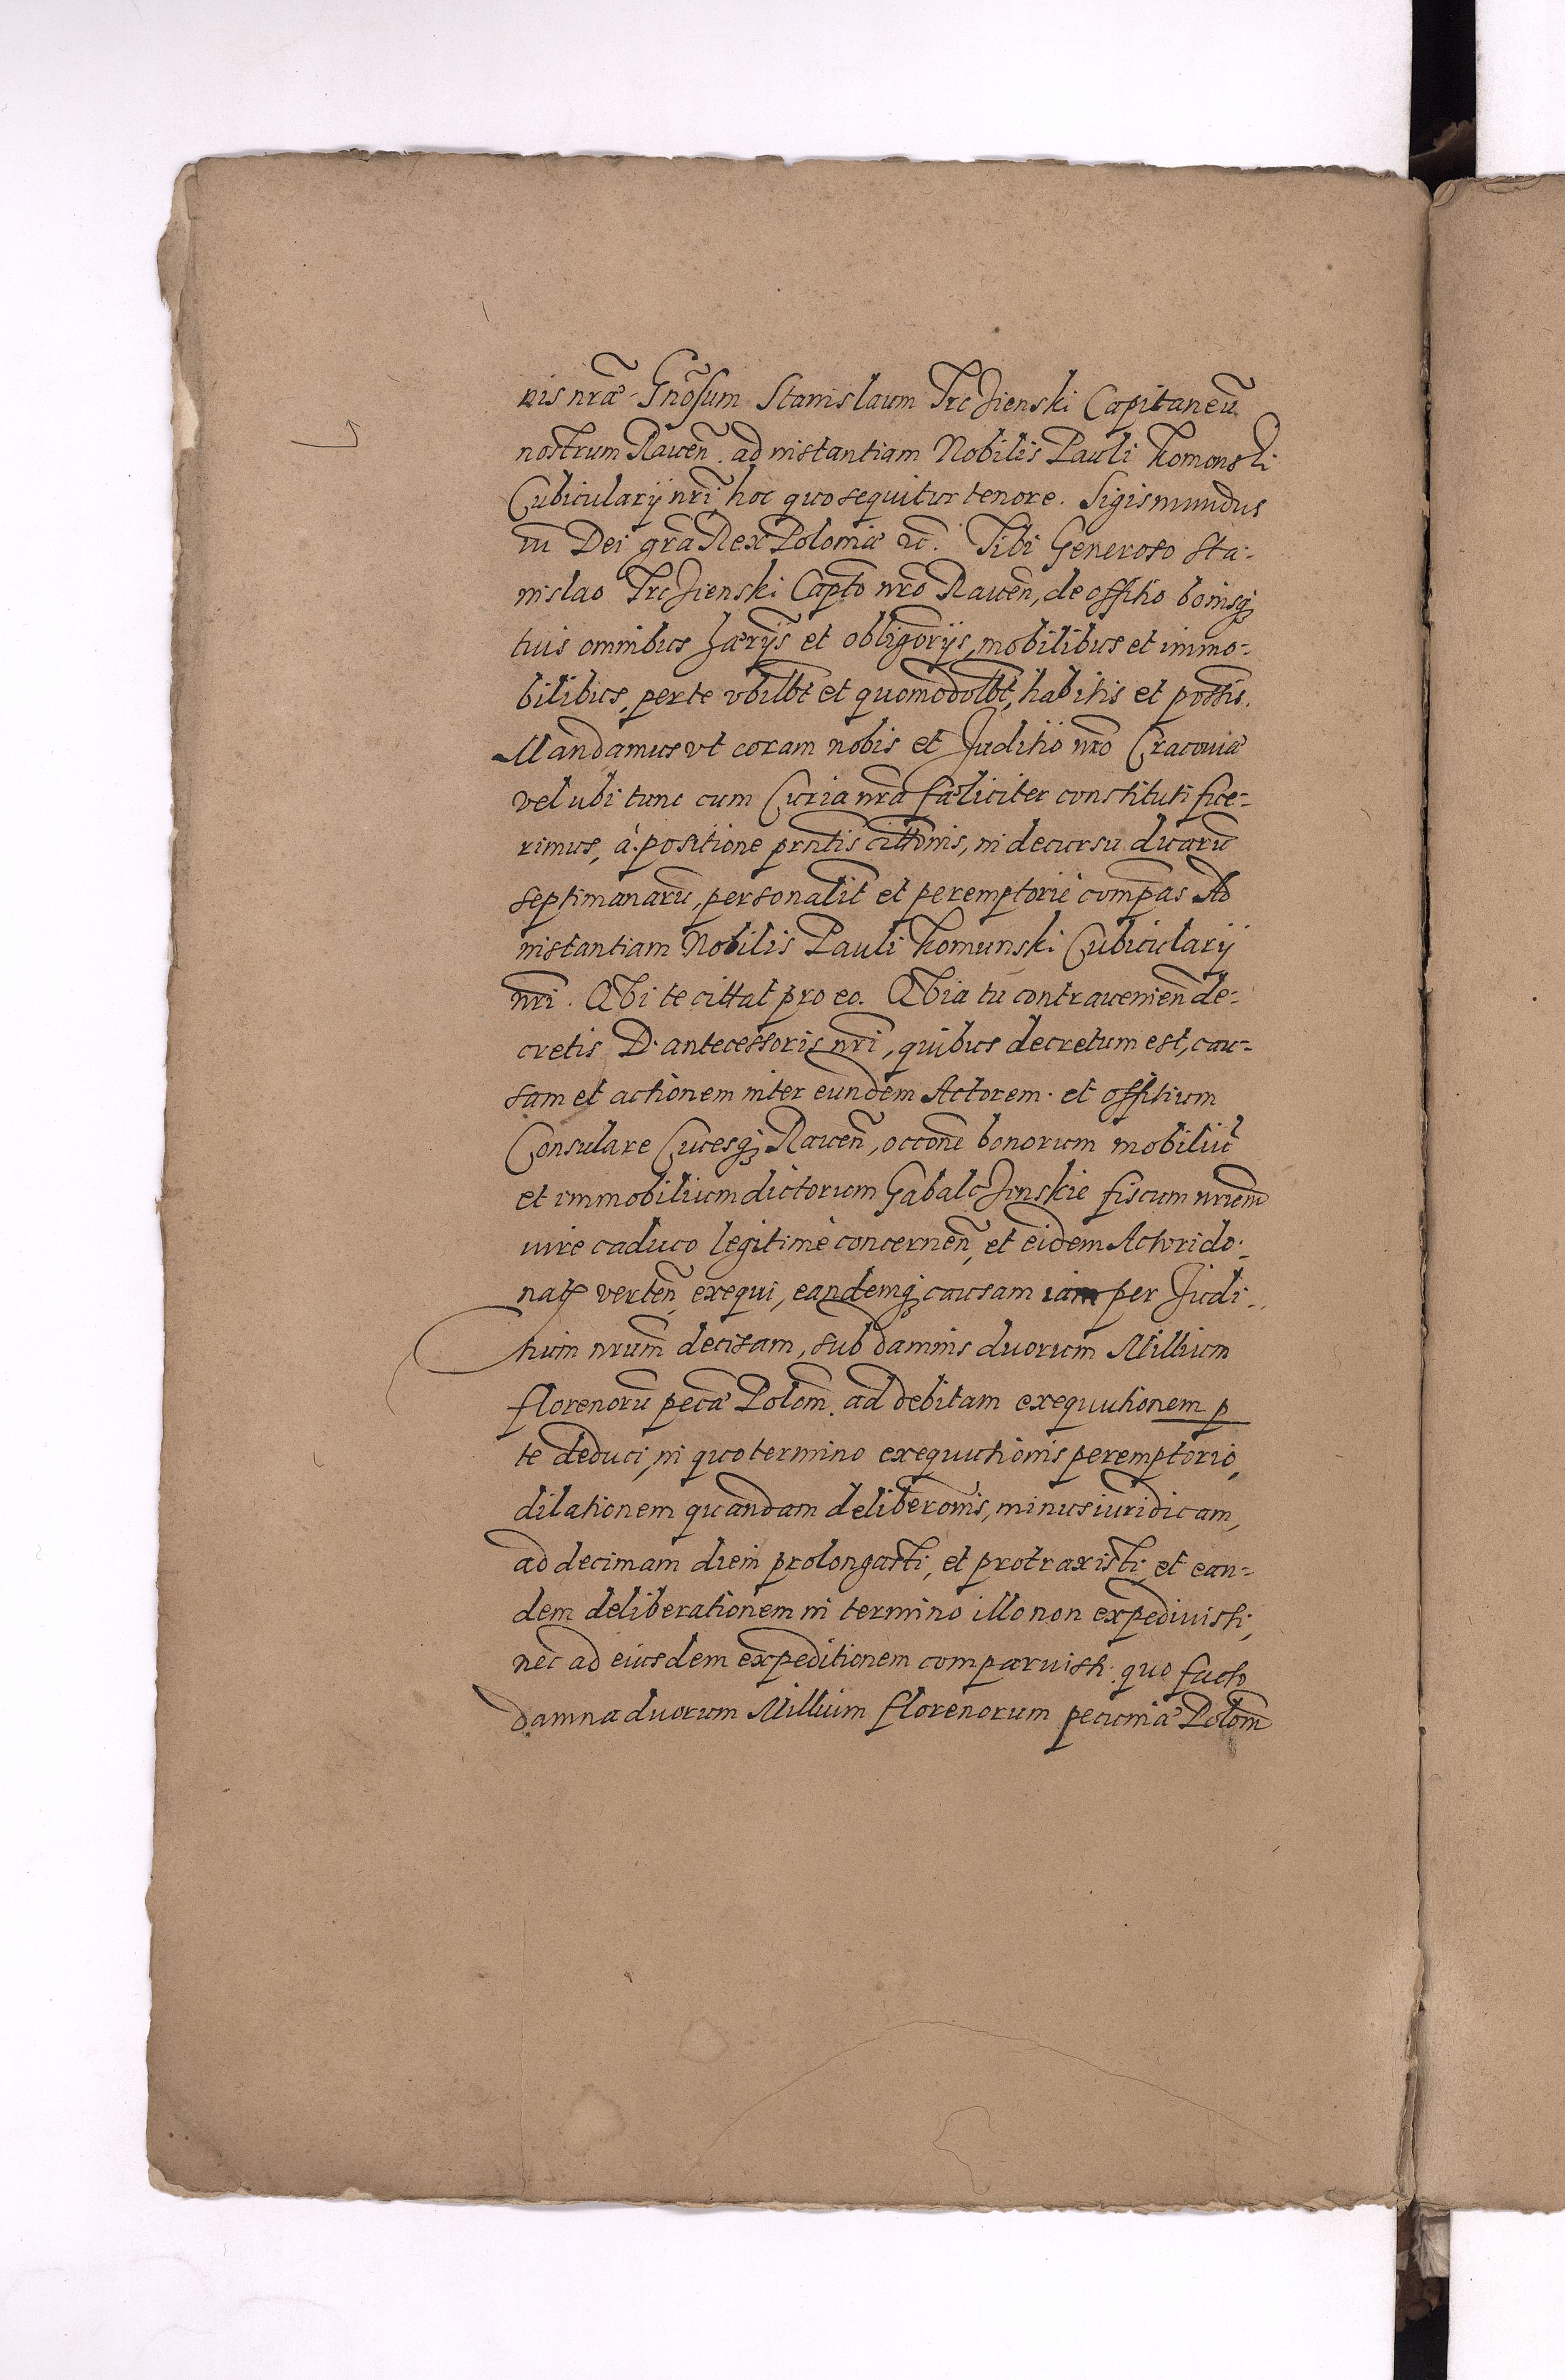 nis nr̃æ Gñosum Stanislaum Trczienski Capitaneũ
nostrum Raueñ. ad instantiam Nobilis Pauli Komonski
Cubicularij nr̃i, hoc quo sequitur tenore. Sigismundus
iii Dei gr̃a Rex Poloniæ ꝛc̃. Tibi Generoso Sta-
nislao Trczienski Capt̃o nr̃o Raueñ, de offitio bonisq̃
tuis omnibus hærijs̃ et obligorijs̃, mobilibus et immo-
bilibus, per te vbilbt̃ et quomodolbt̃, habitis et poss̃is.
Mandamus vt coram nobis et Juditio nr̃o Cracouiæ
vel ubi tunc cum Curia nr̃a fæliciter constituti fue-
rimus, à positione prñtis citt̃onis, in decursu duarũ
septimanarũ, personalit̃ et peremptoriè comp̃as Ad
instantiam Nobilis Pauli Komunski Cubicularij
nr̃i. Qui te cittat pro eo. Quia tu contraueniẽn de-
cretis D. antecessoris nr̃i, quibus decretum est, cau-
sam et actionem inter eundem Actorem et offitium
Consulare Ciuesq̃ Raueñ, occõne bonorum mobiliũ
et immobilium dictorum Gabalczinskie fiscum nrũm
iure caduco legitimè concerneñ, et eidem Actori do-
naꝝ verteñ, exequi, eandemq̃ causam iam per Judi-
tium nrũm decisam, sub damnis duorum Millium
florenorũ pec̃æ Poloñ. ad debitam exequutionem p
te deduci, in quo termino exequutionis peremptorio,
dilationem quandam deliberõnis, minus iuridicam,
ad decimam diem prolongasti, et protraxisti, et ean-
dem deliberationem in termino illo non expediuisti,
nec ad eiusdem expeditionem comparuisti. quo facto
damna duorum Millium florenorum pecuniæ Poloñ